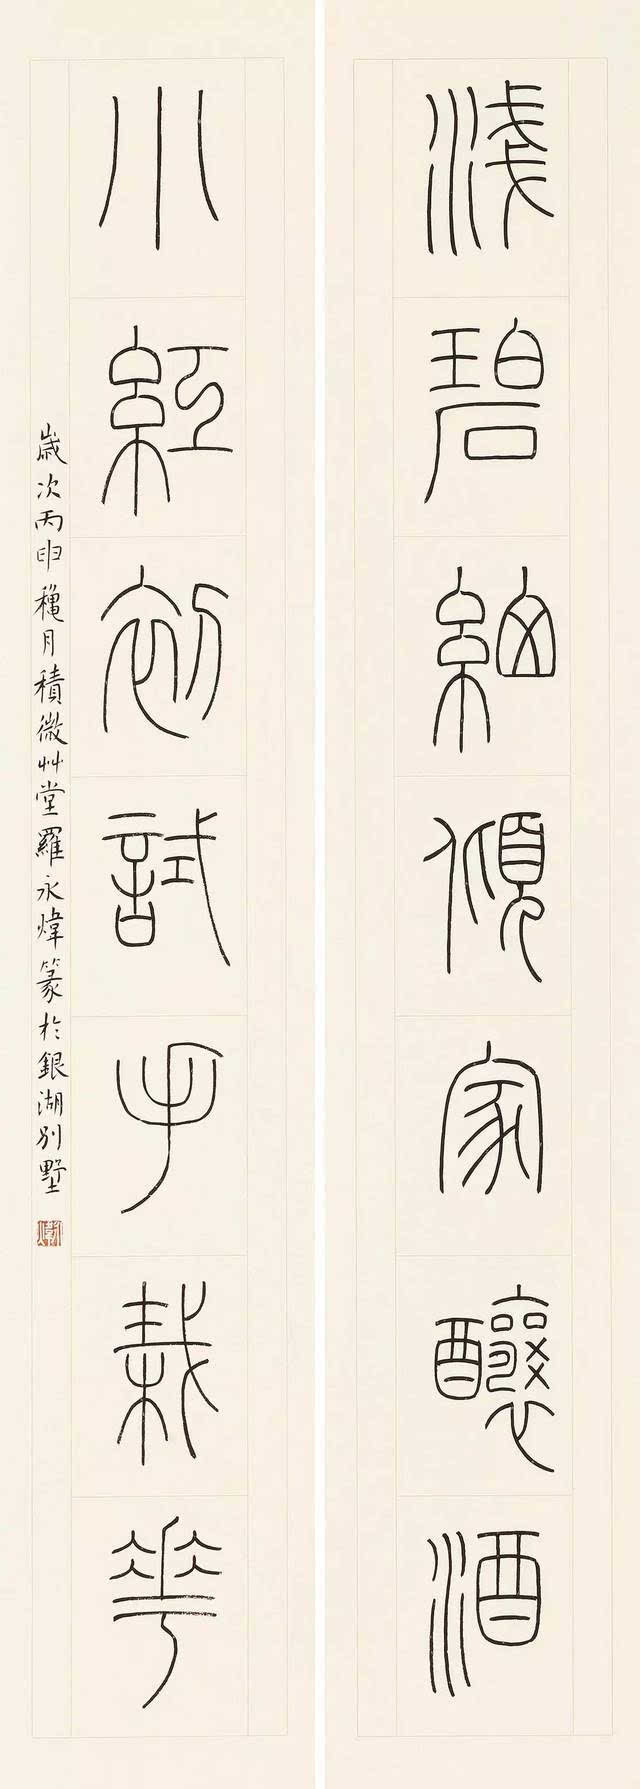 淺碧細傾家釀酒
小紅初試手栽華
歲次丙申穐月積微艸堂羅永煒篆於銀湖別墅